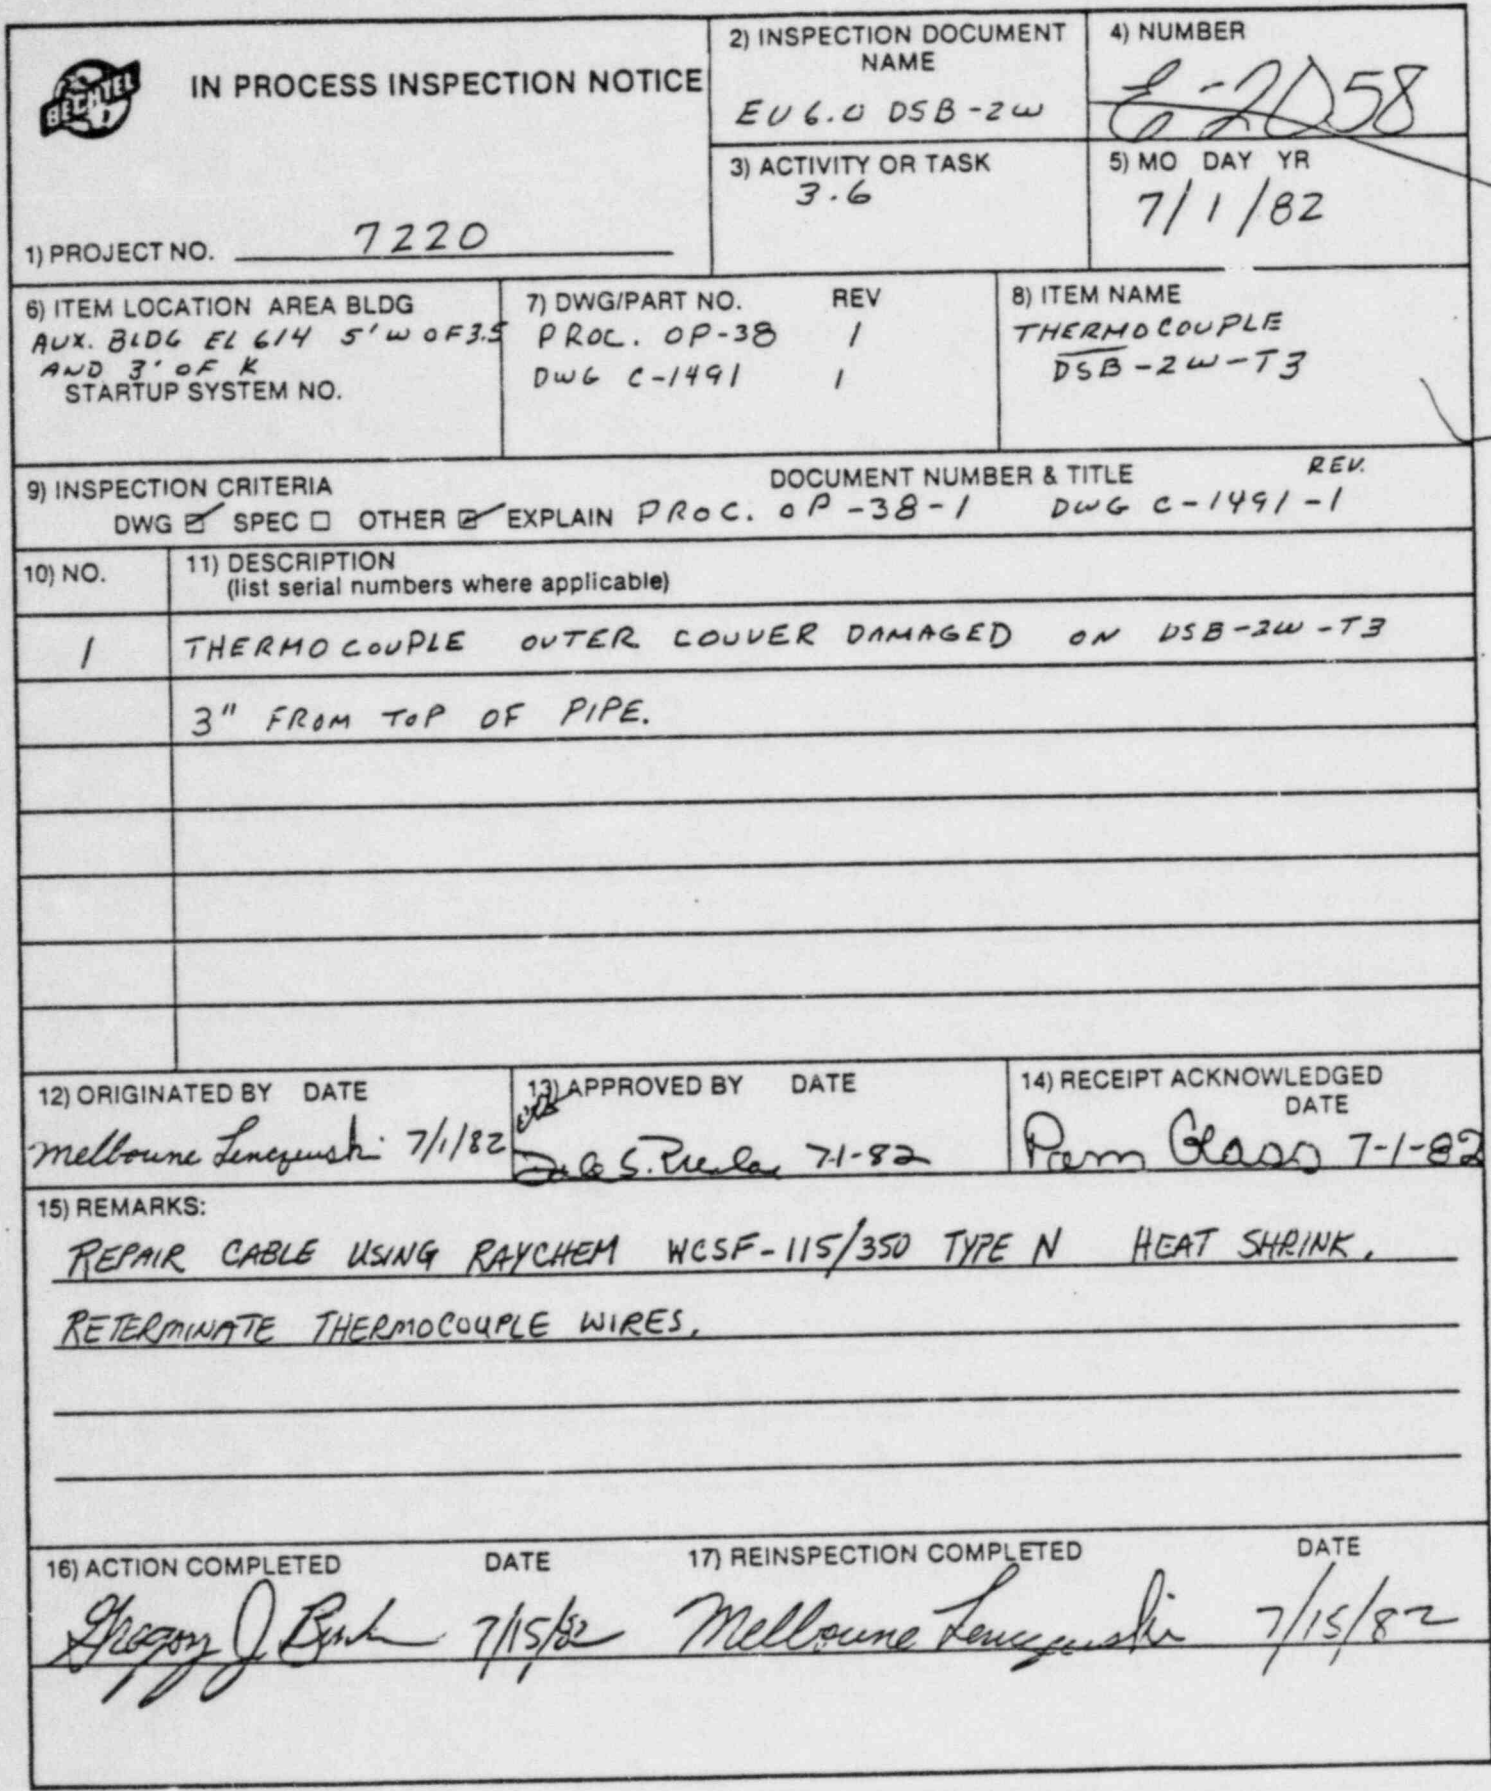 BECHTEL
IN PROCESS INSPECTION NOTICE
1) PROJECT NO. 7220
2) INSPECTION DOCUMENT
NAME
EU 6.0 DSB-2W
3) ACTIVITY OR TASK
3.6
4) NUMBER
E-2058
5) MO DAY YR
7/1/82
6) ITEM LOCATION AREA BLDG
AUX. BLDG EL 614 5' W OF 3.5
AND 3' OF K
STARTUP SYSTEM NO.
7) DWG/PART NO. REV
PROC. OP-38 1
DWG C-1491 1
8) ITEM NAME
THERMOCOUPLE
DSB-2W-T3
9) INSPECTION CRITERIA DOCUMENT NUMBER & TITLE REV.
DWG ☑ SPEC ☐ OTHER ☑ EXPLAIN PROC. OP-38-1 DWG C-1491-1
10) NO. 11) DESCRIPTION
(list serial numbers where applicable)
1 THERMOCOUPLE OUTER COUVER DAMAGED ON DSB-2W-T3
3" FROM TOP OF PIPE.
12) ORIGINATED BY DATE
Melbourne 7/1/82
13) APPROVED BY DATE
S. 7-1-82
14) RECEIPT ACKNOWLEDGED
DATE
Pam Glass 7-1-82
15) REMARKS:
REPAIR CABLE USING RAYCHEM WCSF-115/350 TYPE N HEAT SHRINK.
RETERMINATE THERMOCOUPLE WIRES.
16) ACTION COMPLETED DATE 17) REINSPECTION COMPLETED DATE
Gregory J 7/15/82 Melbourne 7/15/82